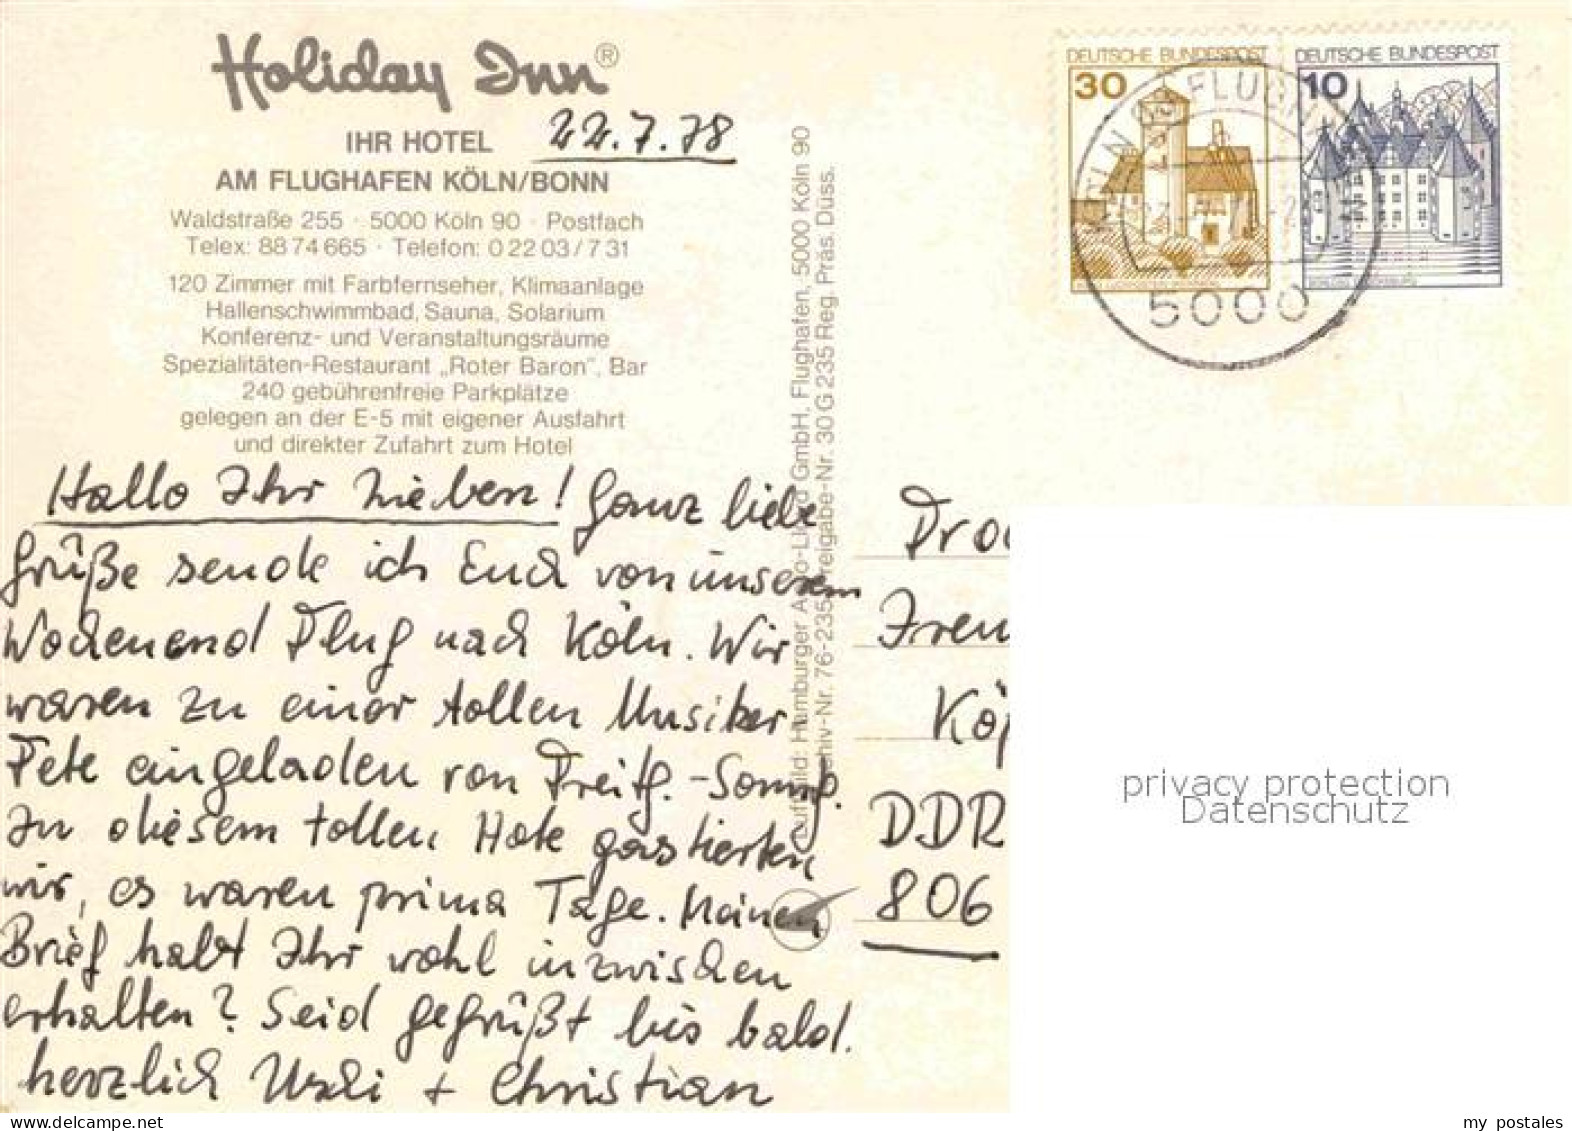 Holiday Inn®
22.7.78
IHR HOTEL
AM FLUGHAFEN KÖLN/BONN
Waldstraße 255 · 5000 Köln 90 · Postfach
Telex: 88 74 665 · Telefon: 0 22 03 / 7 31
120 Zimmer mit Farbfernseher, Klimaanlage
Hallenschwimmbad, Sauna, Solarium
Konferenz- und Veranstaltungsräume
Spezialitäten-Restaurant „Roter Baron", Bar
240 gebührenfreie Parkplätze
gelegen an der E-5 mit eigener Ausfahrt
und direkter Zufahrt zum Hotel
Hallo Ihr Lieben! Ganz liebe
Grüße sende ich Euch von unserem
Wochenend Flug nach Köln. Wir
waren zu einer tollen Musiker
Fete eingeladen von Freitg.-Sonntg.
In diesem tollen Hote gastierten
wir, es waren prima Tage. Meinen
Brief habt Ihr wohl inzwischen
erhalten? Seid gegrüßt bis bald.
herzlich Uschi + Christian
Luftbild: Hamburger Aero-Lloyd GmbH, Flughafen, 5000 Köln 90
Archiv-Nr. 76-235 Freigabe-Nr. 30 G 235 Reg. Präs. Düss.
DEUTSCHE BUNDESPOST
30
DEUTSCHE BUNDESPOST
10
5000
DDR
806
privacy protection
Datenschutz
my postales